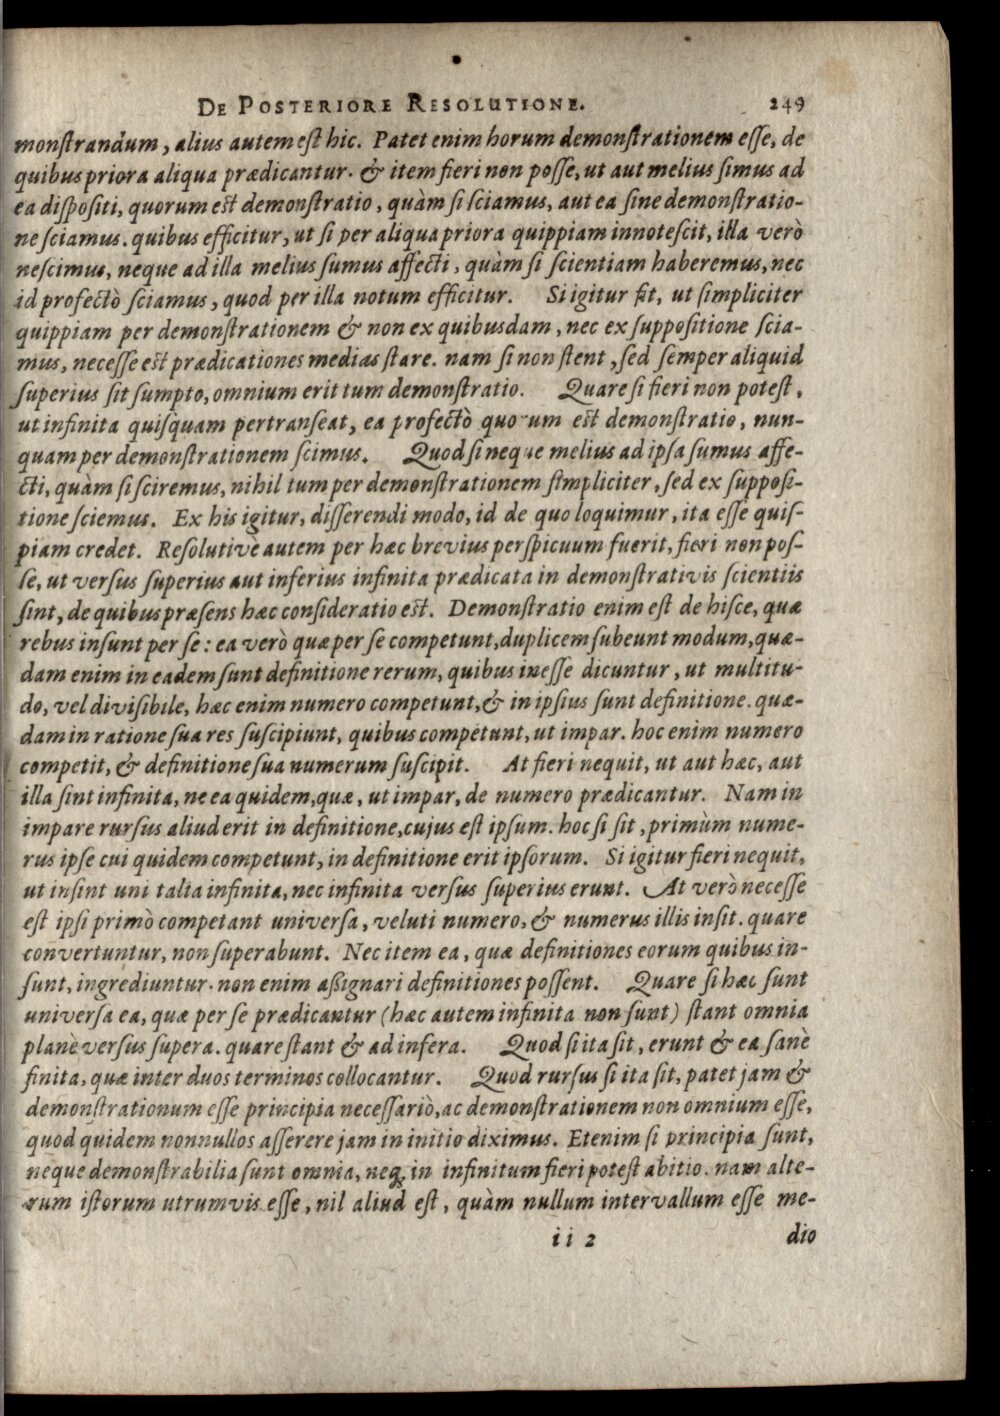 DE POSTERIORE RESOLUTIONE. 249
monſtrandum, alius autem eſt hic. Patet enim horum demonſtrationem eſſe, de
quibus priora aliqua prædicantur. & item fieri non poſſe, ut aut melius ſimus ad
ea diſpoſiti, quorum eſt demonſtratio, quàm ſi ſciamus, aut ea ſine demonſtratio-
ne ſciamus. quibus efficitur, ut ſi per aliqua priora quippiam innoteſcit, illa verò
neſcimus, neque ad illa melius ſumus affecti, quàm ſi ſcientiam haberemus, nec
id profectò ſciamus, quod per illa notum efficitur. Si igitur ſit, ut ſimpliciter
quippiam per demonſtrationem & non ex quibusdam, nec ex ſuppoſitione ſcia-
mus, neceſſe eſt prædicationes medias ſtare. nam ſi non ſtent, ſed ſemper aliquid
ſuperius ſit ſumpto, omnium erit tum demonſtratio. Quare ſi fieri non poteſt,
ut infinita quiſquam pertranſeat, ea profectò quorum eſt demonſtratio, nun-
quam per demonſtrationem ſcimus. Quod ſi neque melius ad ipſa ſumus affe-
cti, quàm ſi ſciremus, nihil tum per demonſtrationem ſimpliciter, ſed ex ſuppoſi-
tione ſciemus. Ex his igitur, diſſerendi modo, id de quo loquimur, ita eſſe quiſ-
piam credet. Reſolutivè autem per hæc brevius perſpicuum fuerit, fieri non poſ-
ſe, ut verſus ſuperius aut inferius infinita prædicata in demonſtrativis ſcientiis
ſint, de quibus præſens hæc conſideratio eſt. Demonſtratio enim eſt de hiſce, quæ
rebus inſunt per ſe: ea verò quæ per ſe competunt, duplicem ſubeunt modum, quæ-
dam enim in eadem ſunt definitione rerum, quibus ineſſe dicuntur, ut multitu-
do, vel diviſibile, hæc enim numero competunt, & in ipſius ſunt definitione. quæ-
dam in ratione ſua res ſuſcipiunt, quibus competunt, ut impar. hoc enim numero
competit, & definitione ſua numerum ſuſcipit. At fieri nequit, ut aut hæc, aut
illa ſint infinita, ne ea quidem, quæ, ut impar, de numero prædicantur. Nam in
impare rurſus aliud erit in definitione, cujus eſt ipſum. hoc ſi ſit, primùm nume-
rus ipſe cui quidem competunt, in definitione erit ipſorum. Si igitur fieri nequit,
ut inſint uni talia infinita, nec infinita verſus ſuperius erunt. At verò neceſſe
eſt ipſi primò competant univerſa, veluti numero, & numerus illis inſit. quare
convertuntur, non ſuperabunt. Nec item ea, quæ definitiones eorum quibus in-
ſunt, ingrediuntur. non enim aßignari definitiones poſſent. Quare ſi hæc ſunt
univerſa ea, quæ per ſe prædicantur (hæc autem infinita non ſunt) ſtant omnia
planè verſus ſupera. quare ſtant & ad infera. Quod ſi ita ſit, erunt & ea ſanè
finita, quæ inter duos terminos collocantur. Quod rurſus ſi ita ſit, patet jam &
demonſtrationum eſſe principia neceſſariò, ac demonſtrationem non omnium eſſe,
quod quidem nonnullos aſſerere jam in initio diximus. Etenim ſi principia ſunt,
neque demonſtrabilia ſunt omnia, neq; in infinitum fieri poteſt abitio. nam alte-
rum iſtorum utrumvis eſſe, nil aliud eſt, quàm nullum intervallum eſſe me-
ii 2 dio